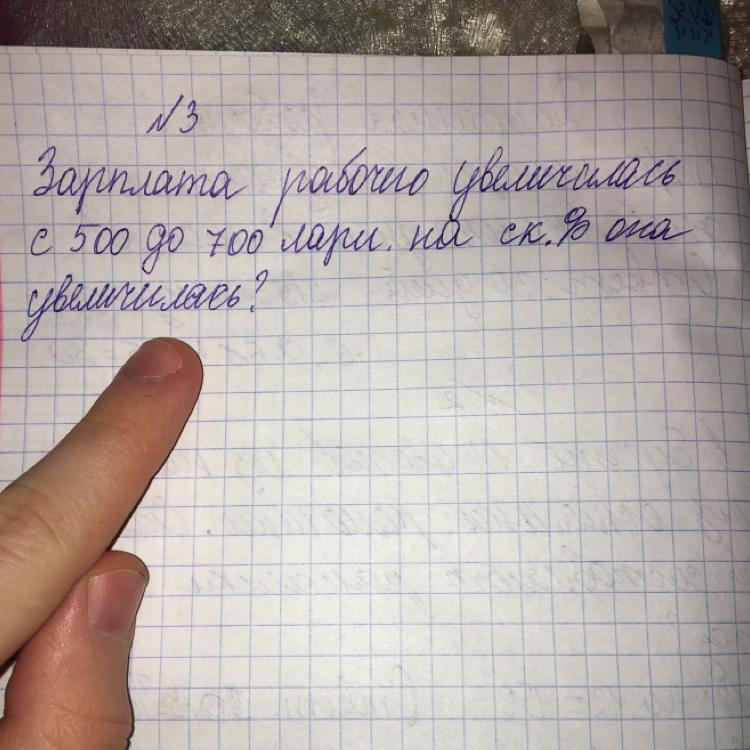 №3
Зарплата рабочего увеличилась
с 500 до 700 лари. на ск.% она
увеличилась?